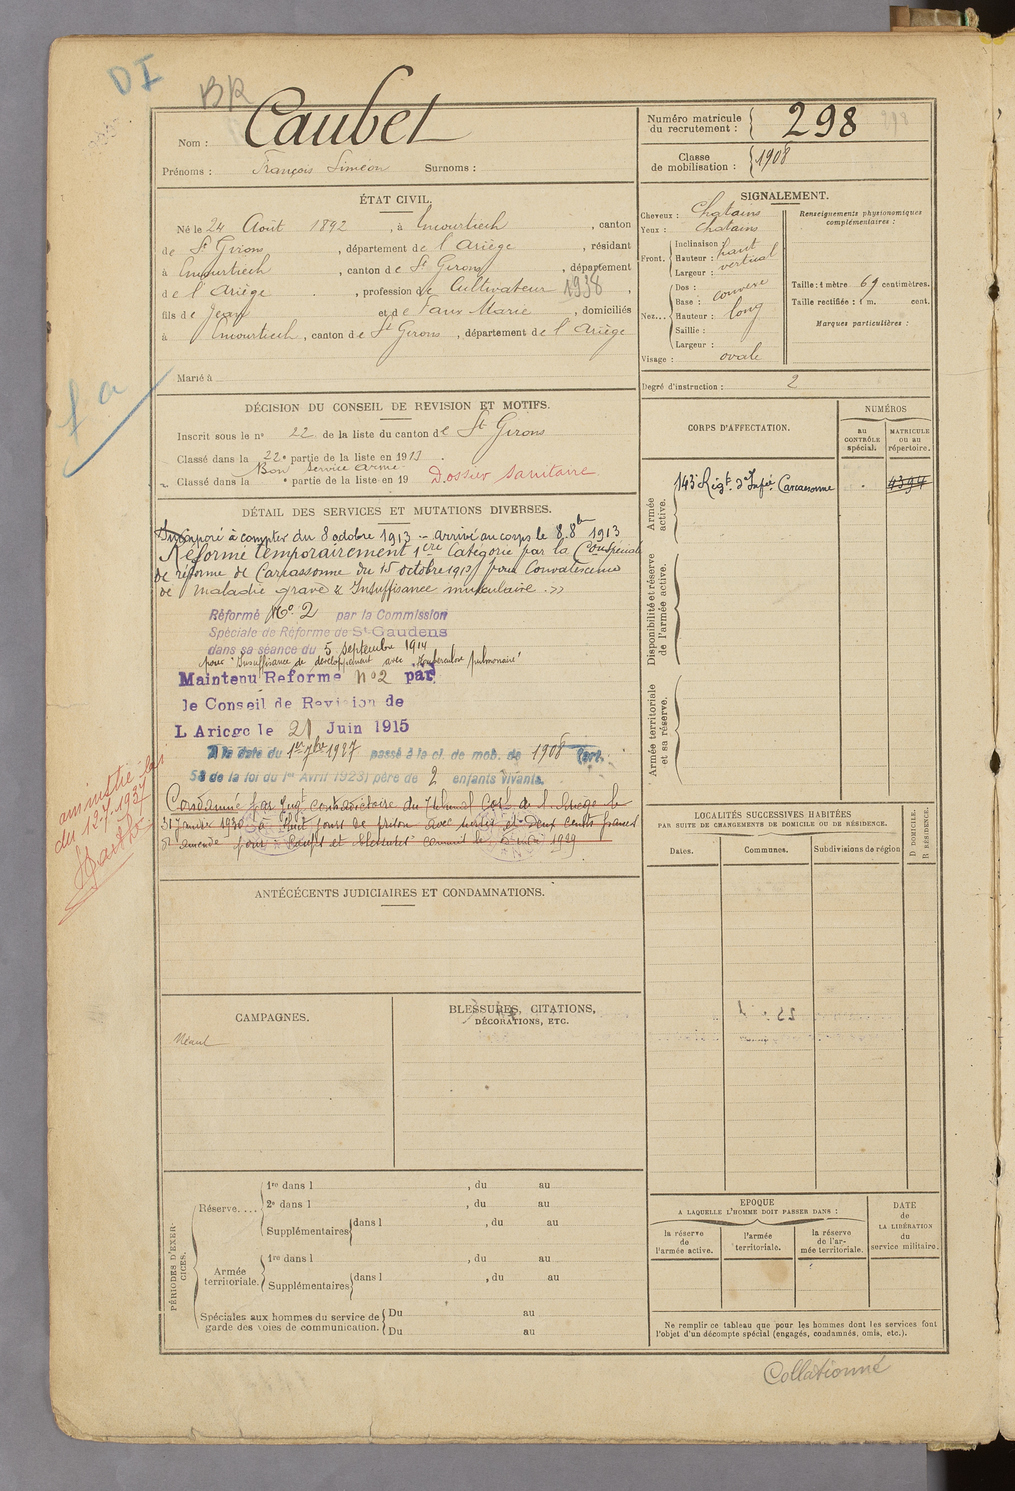 DI
BR
Nom : Caubet
Prénoms : François Siméon Surnoms :
Numéro matricule du recrutement : 298
Classe de mobilisation : 1908
ÉTAT CIVIL.
Né le 24 Août 1892 , à Encourtiech , canton
de St Girons , département de l'Ariège , résidant
à Encourtiech , canton de St Girons , département
de l'Ariège , profession de Cultivateur 1938 ,
fils de Jean et de Faur Marie , domiciliés
à Encourtiech , canton de St Girons , département de l'Ariège
Marié à
fa
SIGNALEMENT.
Cheveux : Chatains
Yeux : chatains
Front. Inclinaison :
Hauteur : haut
Largeur : vertical
Nez... Dos : convexe
Base :
Hauteur : long
Saillie :
Largeur :
Visage : ovale
Renseignements physionomiques complémentaires :
Taille : 1 mètre 69 centimètres.
Taille rectifiée : 1 m. cent.
Marques particulières :
Degré d'instruction : 2
DÉCISION DU CONSEIL DE REVISION ET MOTIFS.
Inscrit sous le no 22 de la liste du canton de St Girons
Classé dans la 22e partie de la liste en 1913
Bon Service armé
Classé dans la e partie de la liste en 19 Dossier Sanitaire
CORPS D'AFFECTATION.
NUMÉROS
au CONTRÔLE spécial.
MATRICULE ou au répertoire.
Armée active.
143e Régt. d'Infie Carcassonne
4394
Disponibilité et réserve de l'armée active.
Armée territoriale et sa réserve.
DÉTAIL DES SERVICES ET MUTATIONS DIVERSES.
Incorporé à compter du 8 octobre 1913 - arrivé au corps le 8 8bre 1913
Réformé temporairement 1ère Catégorie par la Con Spéciale
de réforme de Carcassonne du 15 octobre 1913 pour Convalescence
de maladie grave & Insuffisance musculaire. »
Réformé No. 2 par la Commission
Spéciale de Réforme de St-Gaudens
dans sa séance du 5 Septembre 1914
pour "Insuffisance de développement avec Tuberculose pulmonaire"
Maintenu Reforme no 2 par
le Conseil de Revision de
L Ariege le 21 Juin 1915
A la date du 1er 7bre 1927 passé à la cl. de mob. de 1908 (art.
58 de la loi du 1er Avril 1923) père de 2 enfants vivants.
Condamné par Jugt contradictoire du Tribunal Corl de l'Ariège le
31 Janvier 1930 à Huit jours de prison avec sursis et deux cents francs
d'amende pour Coups et blessures commis le 1929
amnistié loi
du 12.7.1937
ANTÉCÉCENTS JUDICIAIRES ET CONDAMNATIONS.
LOCALITÉS SUCCESSIVES HABITÉES
PAR SUITE DE CHANGEMENTS DE DOMICILE OU DE RÉSIDENCE.
Dates.
Communes.
Subdivisions de région
D DOMICILE.
R RÉSIDENCE.
CAMPAGNES.
Néant
BLESSURES, CITATIONS,
DÉCORATIONS, ETC.
PÉRIODES D'EXERCICES.
Réserve.... 1re dans l , du au
2e dans l , du au
Supplémentaires dans l , du au
Armée territoriale. 1re dans l , du au
Supplémentaires dans l , du au
Spéciales aux hommes du service de garde des voies de communication. Du au
Du au
EPOQUE
A LAQUELLE L'HOMME DOIT PASSER DANS :
la réserve de l'armée active.
l'armée territoriale.
la réserve de l'armée territoriale.
DATE de LA LIBÉRATION du service militaire.
Ne remplir ce tableau que pour les hommes dont les services font
l'objet d'un décompte spécial (engagés, condamnés, omis, etc.).
Collationné